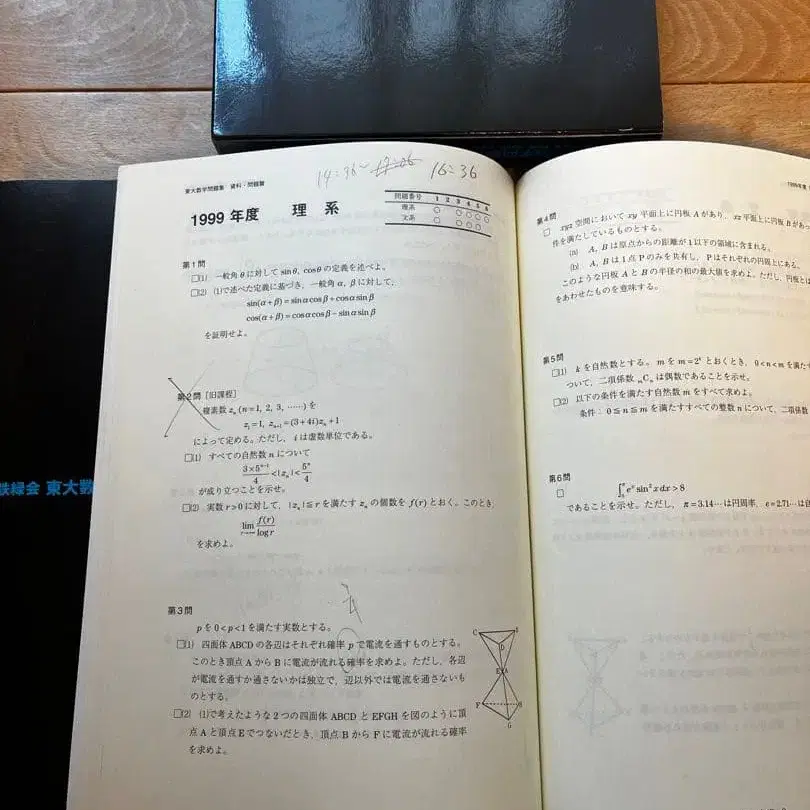 14:36～ 17:06 16:36
東大数学問題集 資料・問題篇
1999年度 理系
問題番号 1 2 3 4 5 6
理系 ○ ○ ○ ○ ○
文系 ○ ○ ○ ○
第1問
□(1) 一般角θに対して sinθ, cosθの定義を述べよ。
□(2) (1)で述べた定義に基づき，一般角α, βに対して，
sin(α+β)=sinαcosβ+cosαsinβ
cos(α+β)=cosαcosβ−sinαsinβ
を証明せよ。
第2問［旧課程］
複素数 zₙ (n=1, 2, 3, ……) を
z₁=1, zₙ₊₁=(3+4i)zₙ+1
によって定める。ただし，iは虚数単位である。
□(1) すべての自然数 n について
3×5ⁿ⁻¹/4<|zₙ|<5ⁿ/4
が成り立つことを示せ。
□(2) 実数 r>0 に対して，|zₙ|≦r を満たす zₙ の個数を f(r) とおく。このとき，
lim r→∞ f(r)/log r
を求めよ。
第3問
p を 0<p<1 を満たす実数とする。
□(1) 四面体 ABCD の各辺はそれぞれ確率 p で電流を通すものとする。
このとき頂点 A から B に電流が流れる確率を求めよ。ただし，各辺
が電流を通すか通さないかは独立で，辺以外では電流を通さないも
のとする。
□(2) (1)で考えたような2つの四面体 ABCD と EFGH を図のように頂
点 A と頂点 E でつないだとき，頂点 B から F に電流が流れる確率
を求めよ。
C
D
E A
F H
G
1999年度
第4問
□ xyz 空間において xy 平面上に円板 A があり，xz 平面上に円板 B があっ
件を満たしているものとする。
(a) A, B は原点からの距離が1以下の領域に含まれる。
(b) A, B は1点 P のみを共有し，P はそれぞれの円周上にある。
このような円板 A と B の半径の和の最大値を求めよ。ただし，円板とは
をあわせたものを意味する。
第5問
□(1) k を自然数とする。m を m=2ᵏ とおくとき，0<n<m を満た
ついて，二項係数 ₘCₙ は偶数であることを示せ。
□(2) 以下の条件を満たす自然数 m をすべて求めよ。
条件：0≦n≦m を満たすすべての整数 n について，二項係数
第6問
□ ∫₀^π eˣ sin²x dx>8
であることを示せ。ただし，π=3.14… は円周率，e=2.71… は自
鉄緑会 東大数